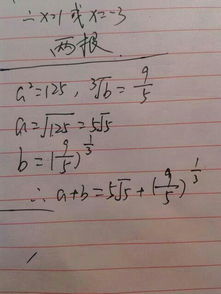 ∴ x=1 或 x=-3
两根
a²=125, ∛b = 9/5
a=√125=5√5
b=(9/5)^(1/3)
∴ a+b=5√5+(9/5)^(1/3)